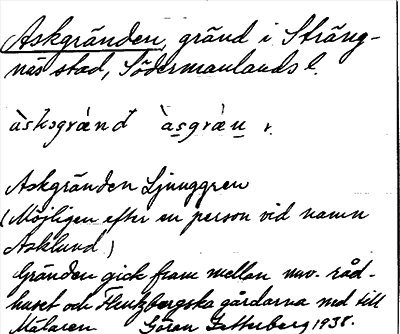 Askgränden, gränd i Sträng-
näs stad, Södermanlands l.
Askgränden Ljunggren
(Möjligen efter en person vid namn
Asklund)
Gränden gick fram mellan nuv. råd-
huset och gårdarna ned till
Mälaren Göran 1938.